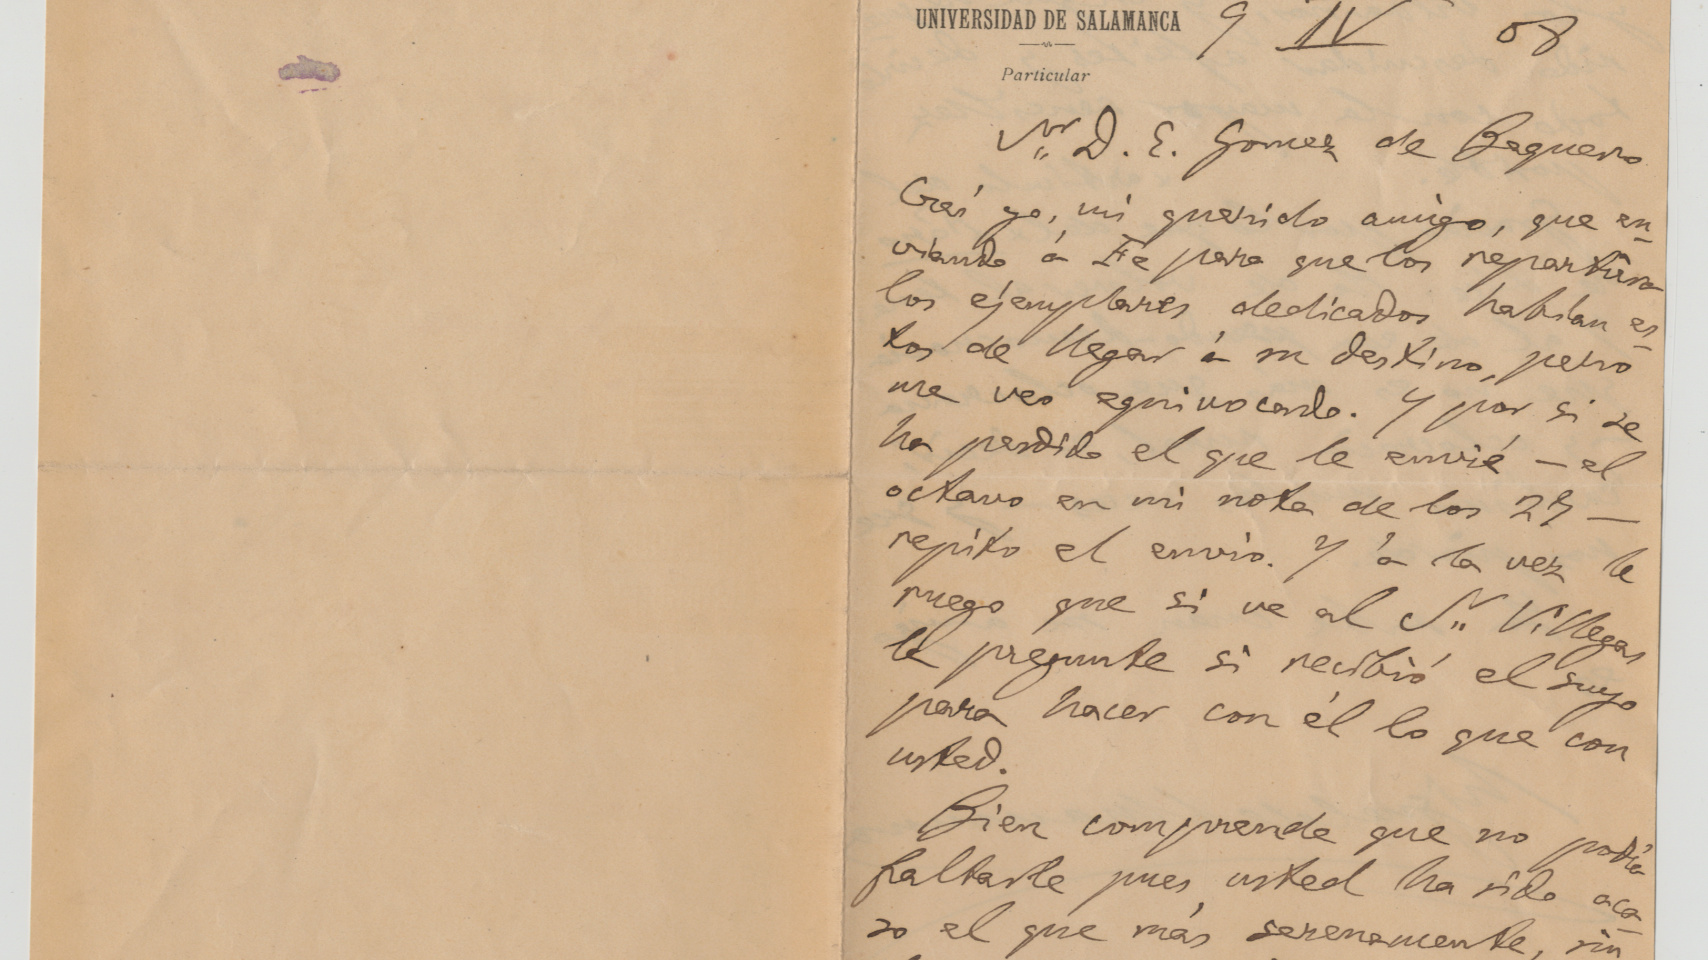 UNIVERSIDAD DE SALAMANCA 9 IV 08
Particular
Sr. D. E. Gomez de Baquero
Creí yo, mi querido amigo, que en-
viando á Fe para que los repartiera
los ejemplares dedicados habían es-
tos de llegar á su destino, pero
me veo equivocado. Y por si se
ha perdido el que le envié — el
octavo en mi nota de los 27 —
repito el envio. Y á la vez le
ruego que si ve al Sr. Villegas
le pregunte si recibió el suyo
para hacer con él lo que con
usted.
Bien comprende que no podía
faltarle pues usted ha sido aca-
so el que más serenamente, sin